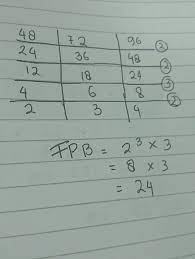 48 72 96 2
24 36 48 2
12 18 24 3
4 6 8 2
2 3 4
FPB = 2³ × 3
= 8 × 3
= 24